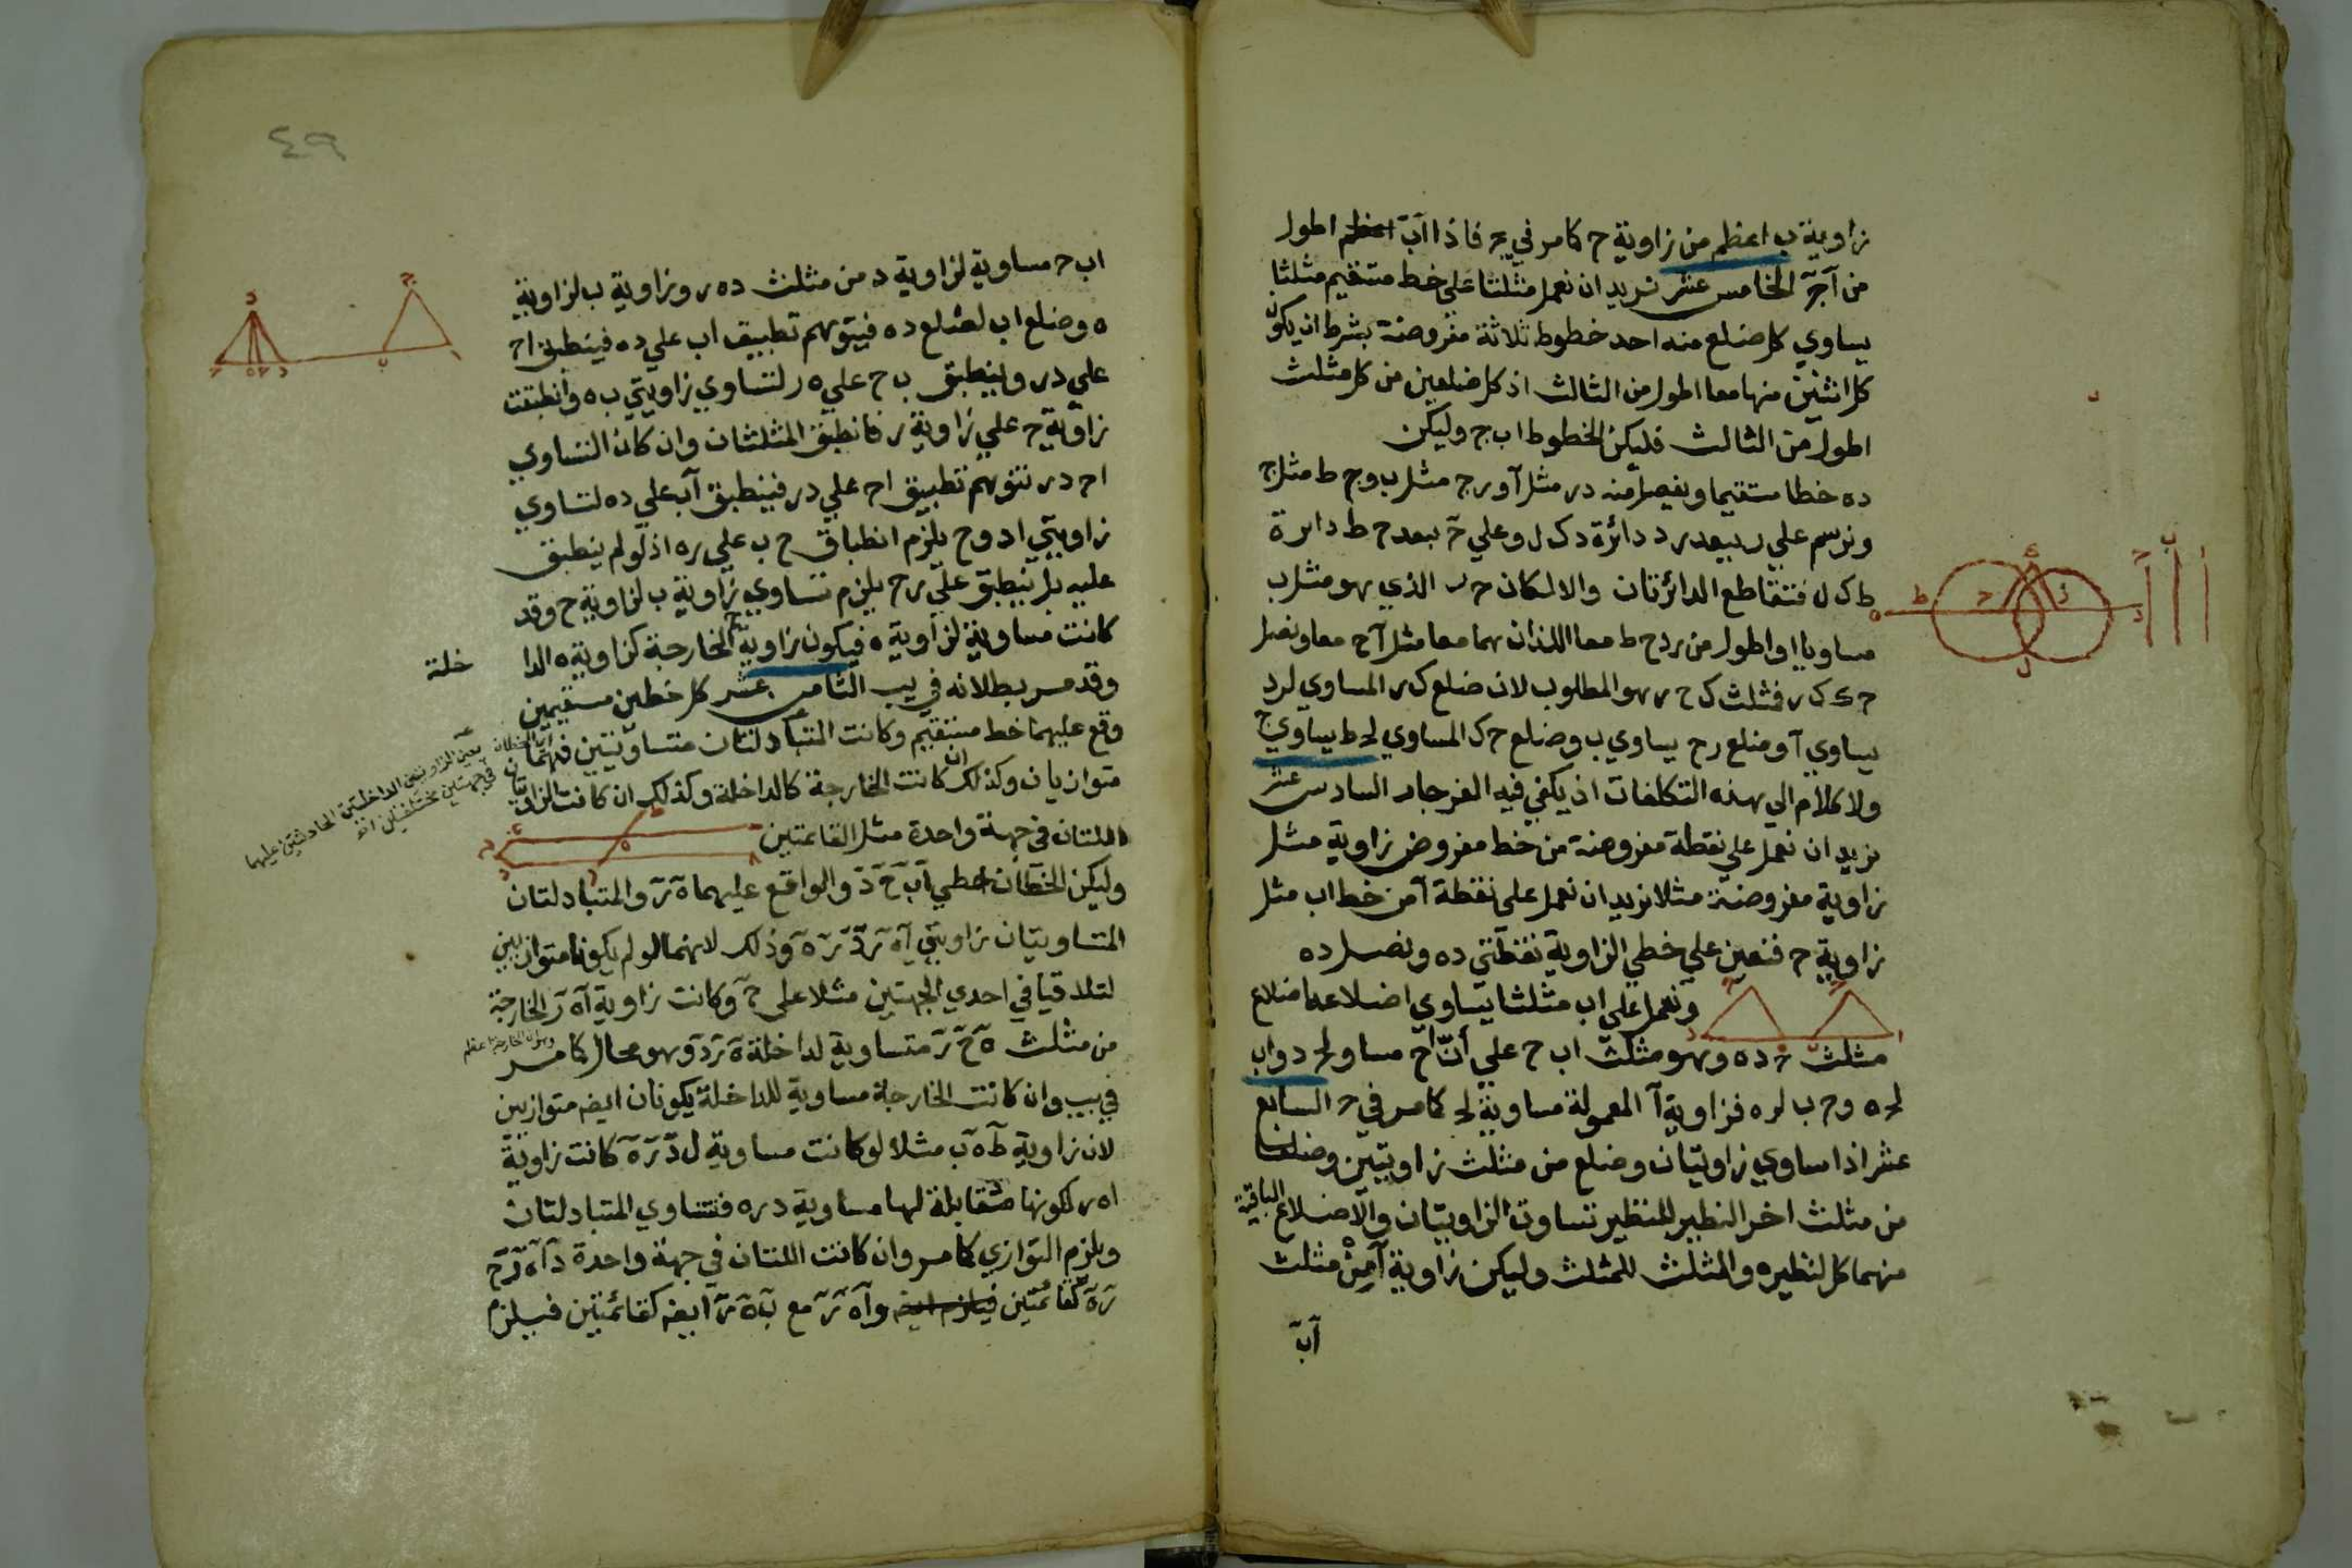 زاوية ب اعظم من زاوية ح كما مر في يج فاذا اب اعظم اطول
من آج الخامس عشر نريد ان نعمل مثلثا على خط مستقيم مثلثا
يساوي كل ضلع منه احد خطوط ثلاثة مفروضة بشرط ان يكون
كل اثنين منها معا اطول من الثالث اذ كل ضلعين من كل مثلث
اطول من الثالث فليكن الخطوط ا ب ج وليكن
ده خطا مستقيما ونفصل منه در مثل آ و رح مثل ب وح ط مثل ج
ونرسم علي ر ببعد ر د دائرة د ك ل وعلي ح ببعد ح ط دائرة
ط ك ل فتتقاطع الدائرتان والا لكان ح ر الذي هو مثل ب
مساويا او اطول من رد ح ط معا اللذان هما معا مثل آ ج معا ونصل
ح ك ك ر فمثلث ك ح ر هو المطلوب لان ضلع ك ر المساوي لرد
يساوي آ وضلع رح يساوي ب وضلع ح ك المساوي لح ط يساوي ج
ولا كلام الي هذه التكلفات اذ يكفي فيه الفرجار السادس عشر
نريد ان نعمل علي نقطة مفروضة من خط مفروض زاوية مثل
زاوية مفروضة مثلا نريد ان نعمل على نقطة آ من خط اب مثل
زاوية ح فنعين علي خطي الزاوية نقطتي ده ونصل ده
ونعمل علي اب مثلثا يساوي اضلاعه اضلاع
مثلث ح ده وهو مثلث اب ح علي أنّ اح مساو لح د واب
لح ه وح ب لده فزاوية آ المعمولة مساوية لح كما مر في ح السابع
عشر اذا ساوي زاويتان وضلع من مثلث زاويتين وضلعا
من مثلث اخر النظير للنظير تساوت الزاويتان والاضلاع الباقية
منهما كل لنظيره والمثلث للمثلث وليكن زاوية آ من مثلث
آب
٤٩
اب ح مساوية لزاوية د من مثلث ده ر وزاوية ب لزاوية
ه وضلع اب لضلع ده فيتوهم تطبيق اب علي ده فينطبق اح
علي در وينطبق ب ح علي ه ر لتساوي زاويتي ب ه وانطبقت
زاوية ح علي زاوية ر فانطبق المثلثان وان كان التساوي
اح در نتوهم تطبيق اح علي در فينطبق آب علي ده لتساوي
زاويتي اد وح يلزم انطباق ح ب علي ره اذ لو لم ينطبق
عليه بل ينطبق علي رح يلزم تساوي زاوية ب لزاوية ح وقد
كانت مساوية لزاوية ه فيكون زاوية ح الخارجة كزاوية ه الدا
خلة
وقد مر بطلانه في يب الثامن عشر كل خطين مستقيمين
وقع عليهما خط مستقيم وكانت المتبادلتان متساويتين فهما
متوازيان وكذلك ان كانت الخارجة كالداخلة وكذلك ان كانت الزاويتان
اللتان في جهة واحدة مثل القائمتين
وليكن الخطان خطي آب ح د والواقع عليهما ه ر والمتبادلتان
المتساويتان زاويتي آ ه ر د ر ه وذلك لانهما لو لم يكونا متوازيين
لتلاقيا في احدي الجهتين مثلا على ح وكانت زاوية آ ه ر الخارجة
من مثلث ه ح ر متساوية لداخلة ه ر د وهو محال كما مر
في يب وان كانت الخارجة مساوية للداخلة يكونان ايضه متوازيين
لان زاوية ط ه ب مثلا لو كانت مساوية ل د ر ه كانت زاوية
اه ر لكونها مقابلة لها مساوية دره فتساوي المتبادلتان
ويلزم التوازي كما مر وان كانت اللتان في جهة واحدة
ر ه كقائمتين فيلزم ايضه وآ ه ر مع ب ه ر ايضه كقائمتين فيلزم